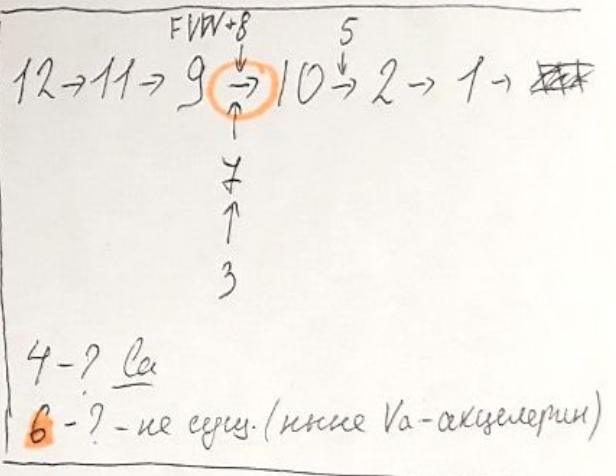 FVW+8 5
12→11→ 9 → 10 → 2 → 1 →
7
3
4-? Ca
6 - ? - не сущ. (ныне Va-акцелерин)